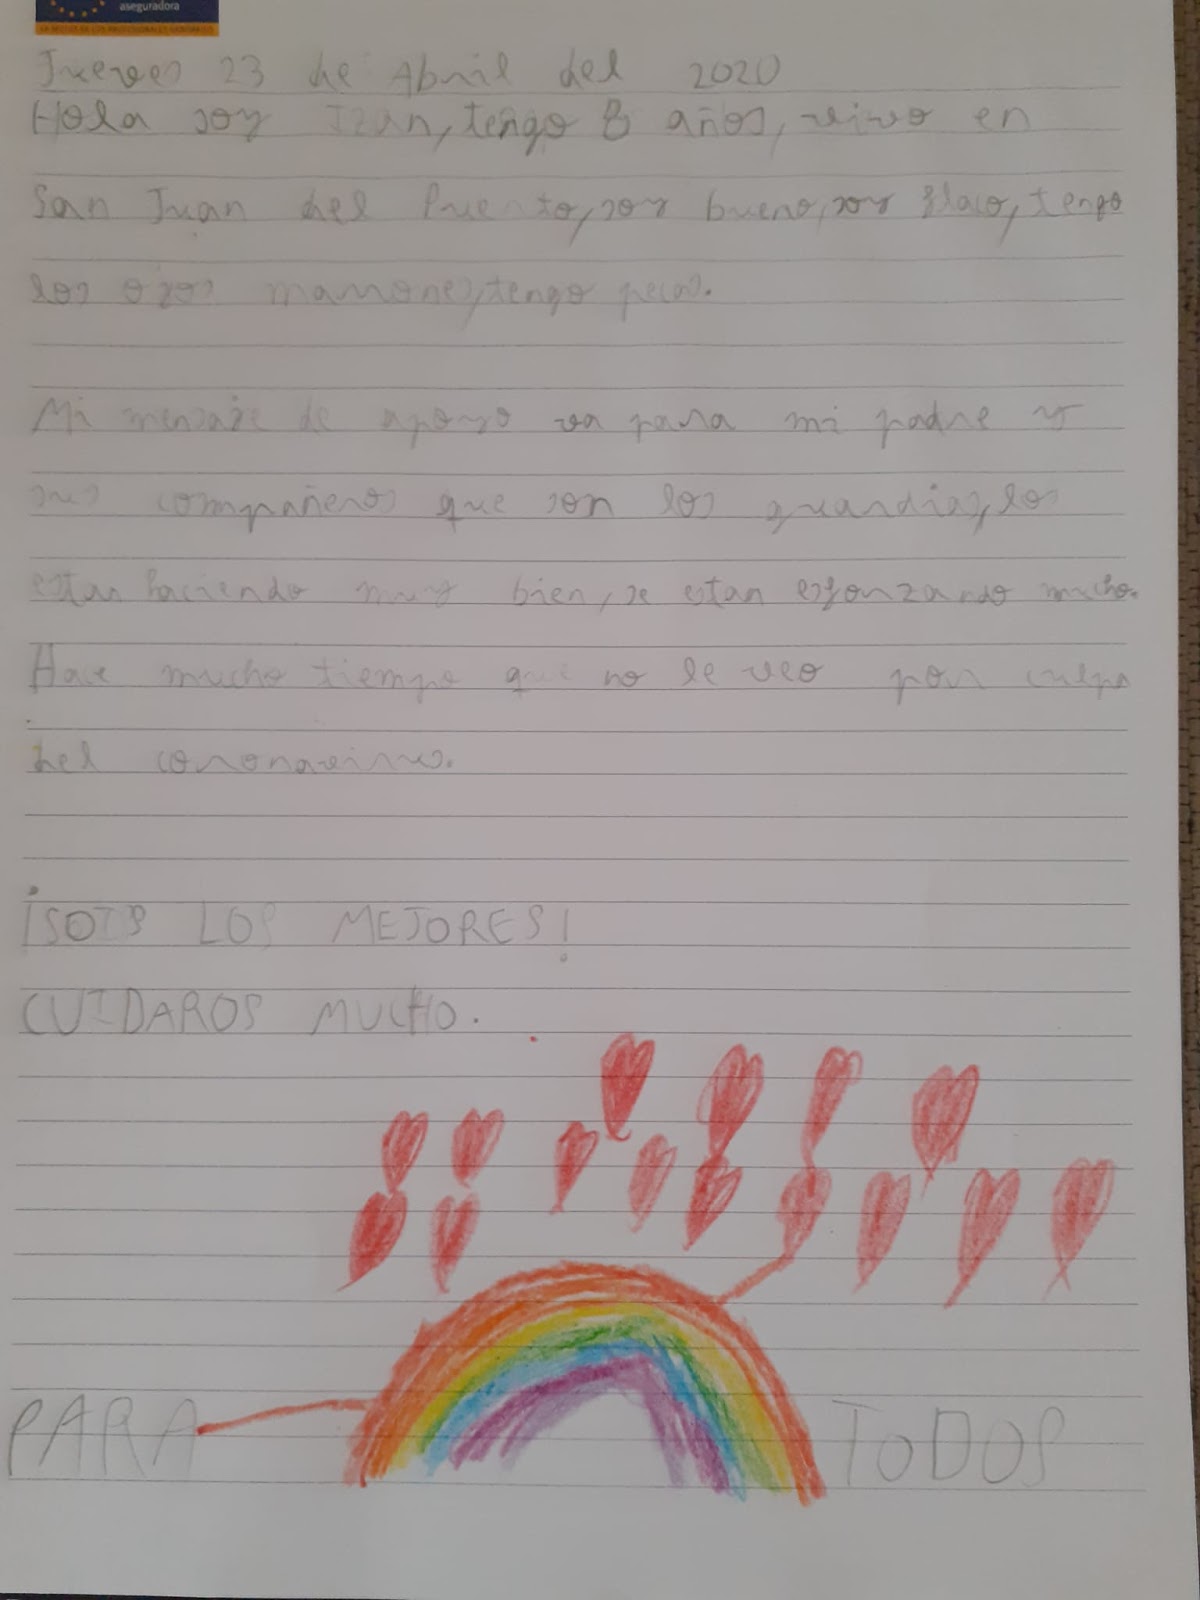 aseguradora
Jueves 23 de Abril del 2020
Hola soy Izan, tengo 8 años, vivo en
San Juan del Puerto, soy bueno, soy flaco, tengo
los ojos marrones, tengo pecas.
Mi mensaje de apoyo va para mi padre y
sus compañeros que son los guardias, lo
estan haciendo muy bien, se estan esforzando mucho.
Hace mucho tiempo que no le veo por culpa
del coronavirus.
¡SOIS LOS MEJORES!
CUIDAROS MUCHO.
PARA TODOS